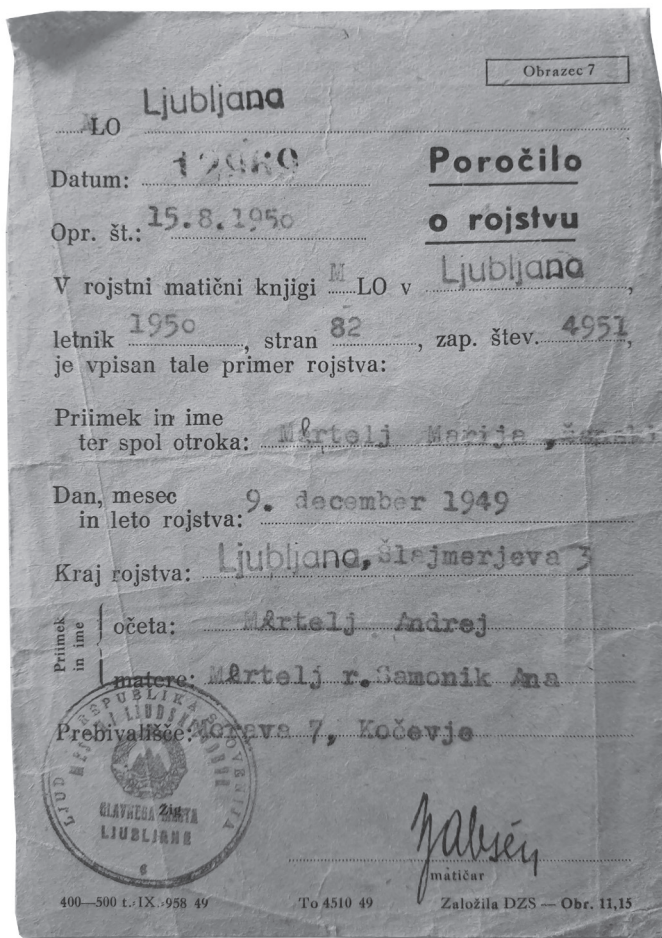 Obrazec 7
Ljubljana
LO
Poročilo
Datum: 12969
o rojstvu
Opr. št.: 15.8.1950
V rojstni matični knjigi M LO v Ljubljana,
letnik 1950, stran 82, zap. štev. 4951,
je vpisan tale primer rojstva:
Priimek in ime
ter spol otroka: Mertelj Marija, ženski
Dan, mesec
in leto rojstva: 9. december 1949
Kraj rojstva: Ljubljana, Šlajmerjeva 3
Priimek in ime
očeta: Mertelj Andrej
matere: Mertelj r. Samonik Ana
Prebivališče: Morava 7, Kočevje
LJUDSKA REPUBLIKA SLOVENIJA
MESTNI LJUDSKI ODBOR
GLAVNEGA MESTA
LJUBLJANE
Žig
6
matičar
400—500 t. IX. 958 49
To 4510 49
Založila DZS — Obr. 11,15